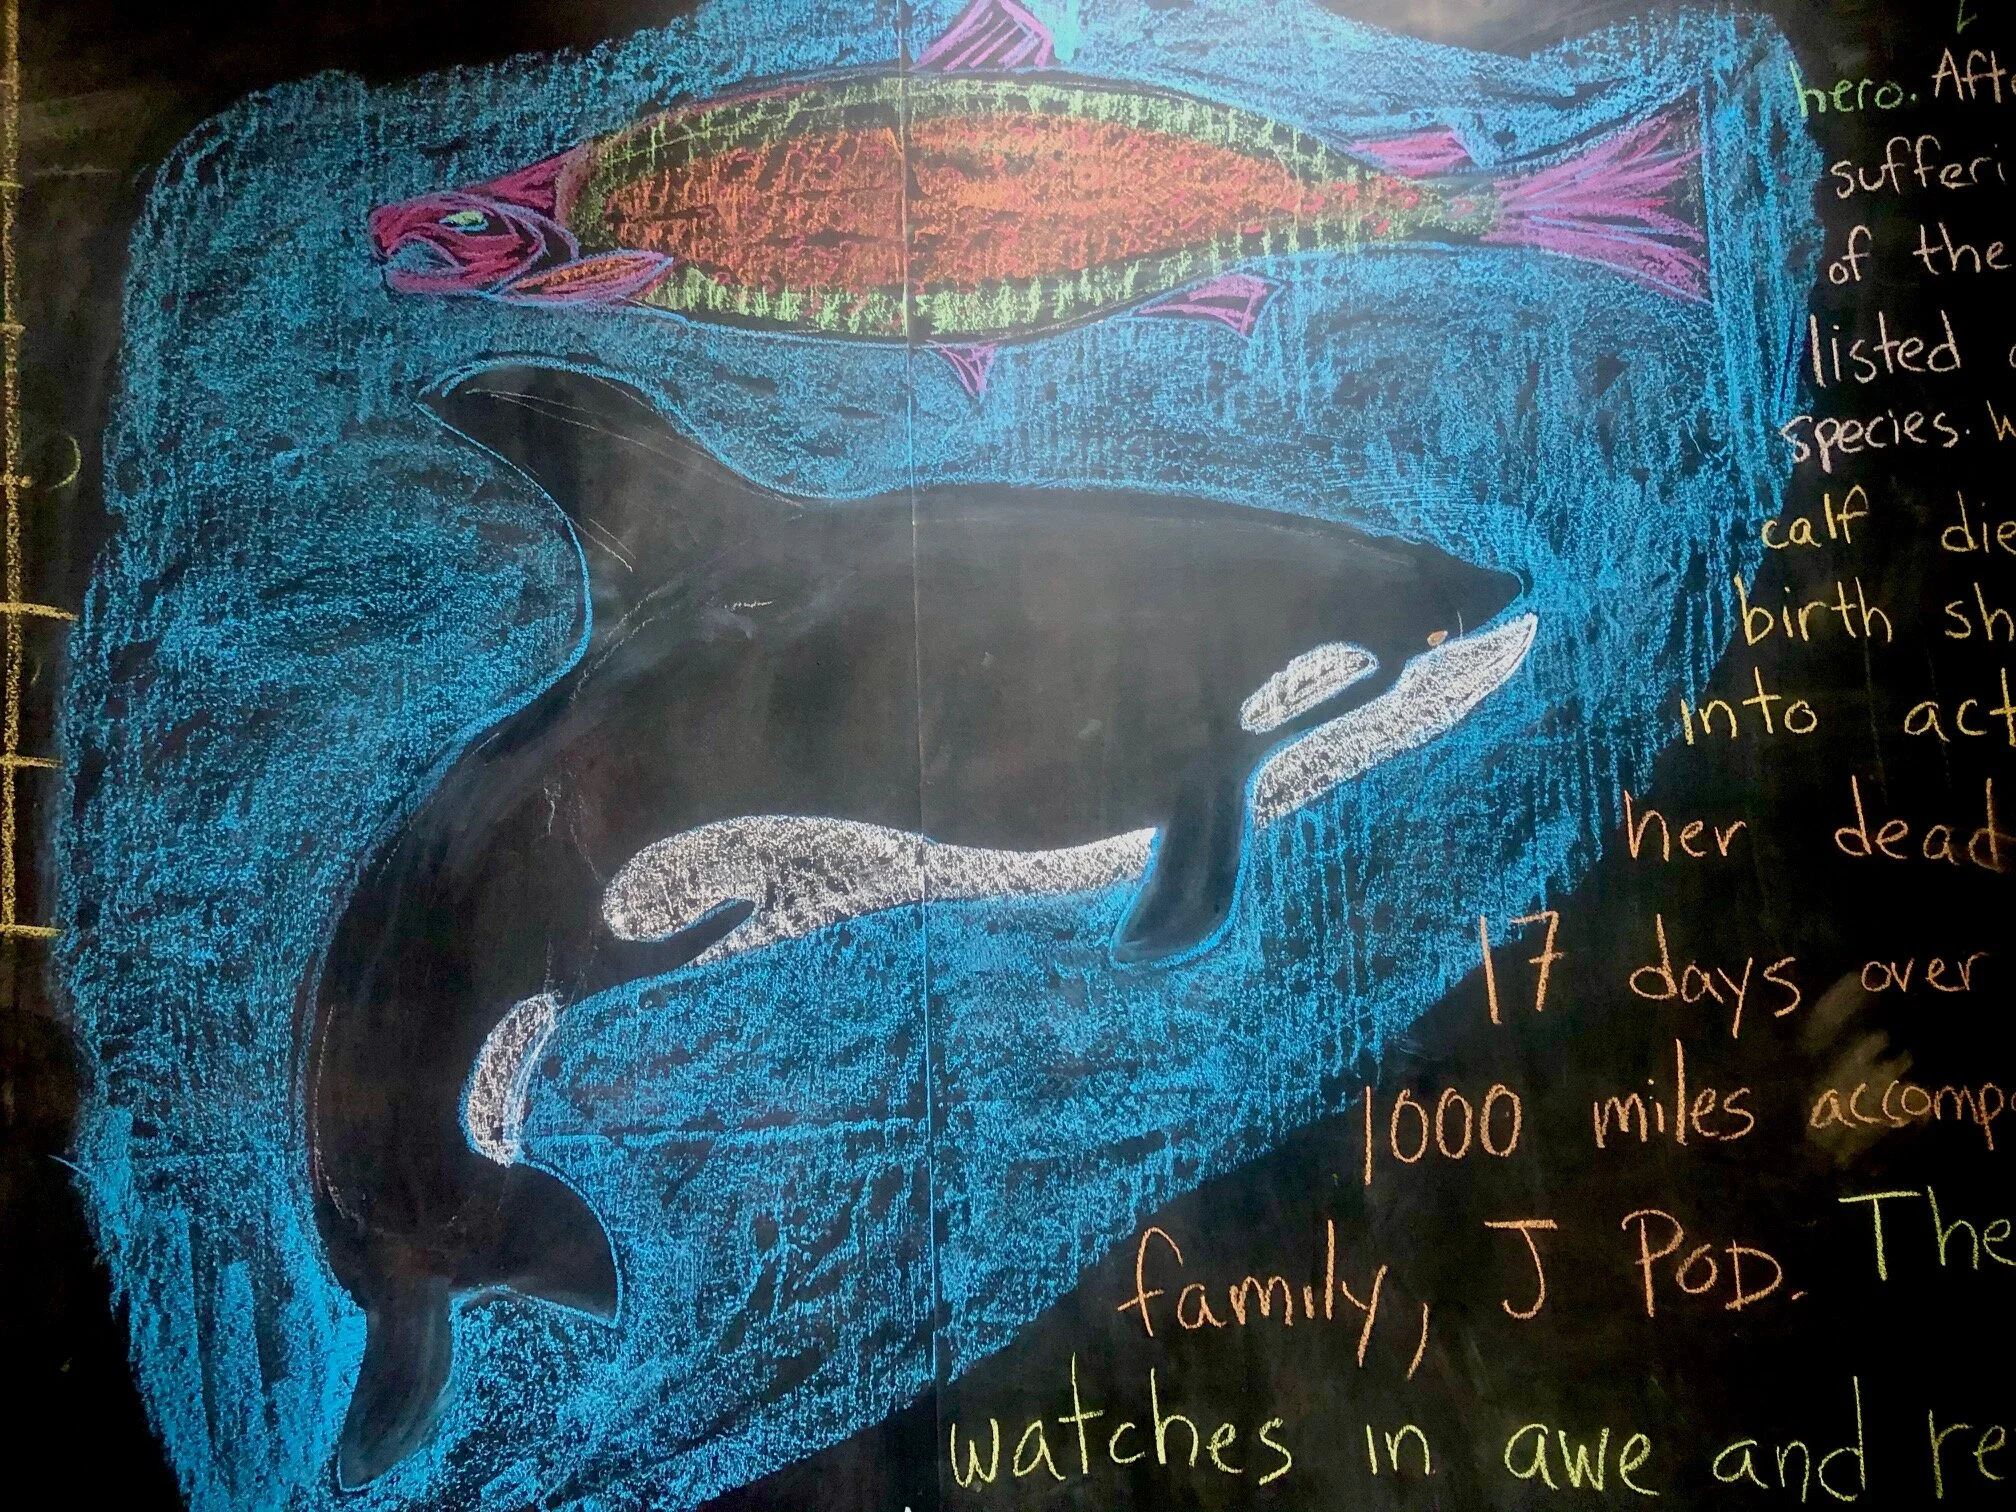 hero. Aft
suffering
of the
listed
species. W
calf die
birth sh
into act
her dead
17 days over
1000 miles accomp
family, J POD. The
watches in awe and re